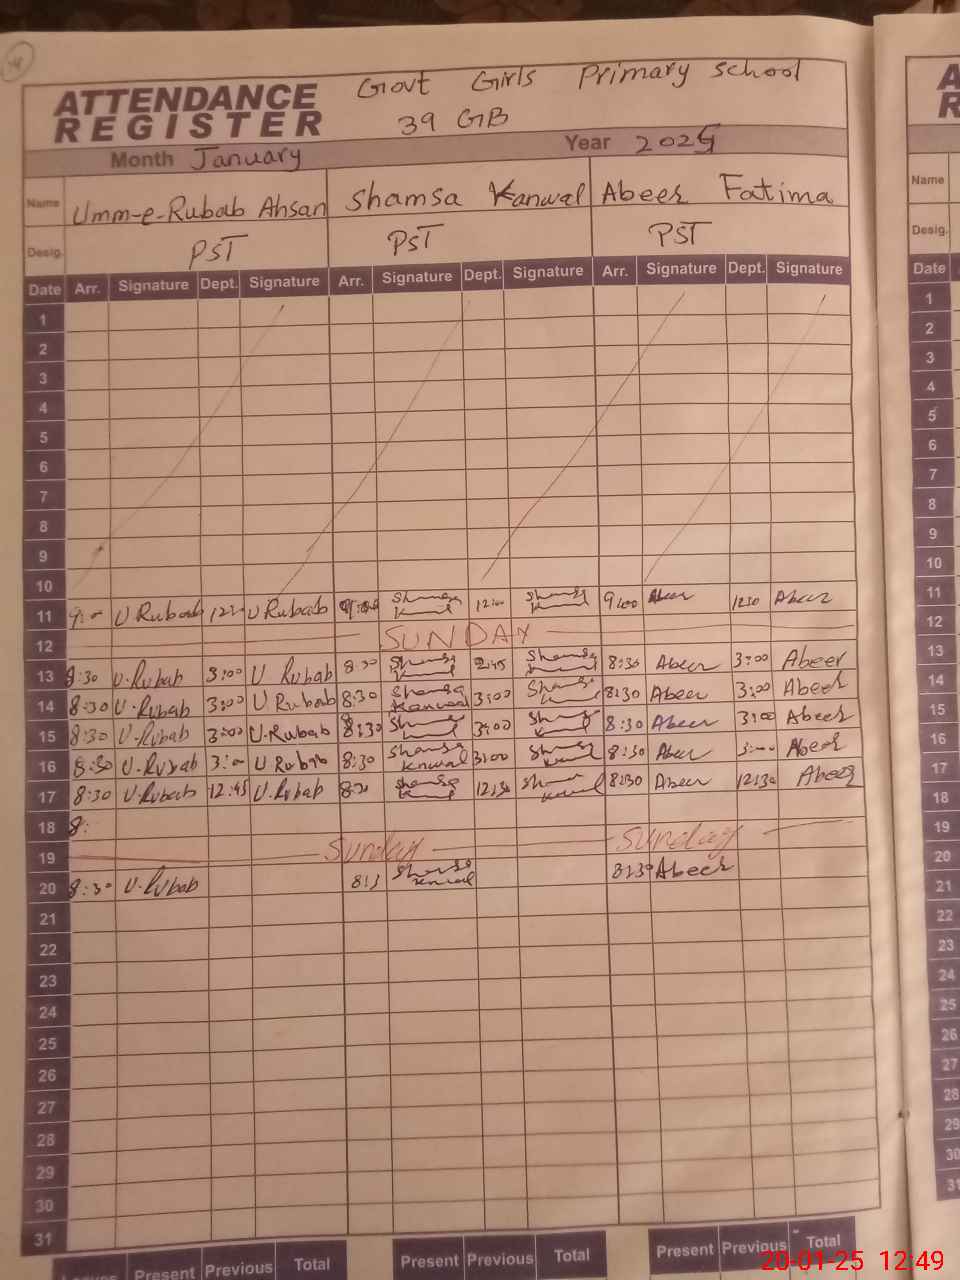 ATTENDANCE REGISTER
Govt Girls Primary school
39 GB
Month January Year 2025
Name Umm-e-Rubab Ahsan Shamsa Kanwal Abeer Fatima
Desig. PST PST PST
Date Arr. Signature Dept. Signature Arr. Signature Dept. Signature Arr. Signature Dept. Signature
1
2
3
4
5
6
7
8
9
10
11 U Rubab U Rubab Shamsa Kanwal Shamsa Kanwal 9:00 Abeer 12:30 Abeer
12 SUNDAY
13 8:30 U.Rubab 3:00 U Rubab 8:30 Shamsa Kanwal 2:45 Shamsa Kanwal 8:30 Abeer 3:00 Abeer
14 8:30 U.Rubab 3:00 U Rubab 8:30 Shamsa Kanwal 3:00 Shamsa 8:30 Abeer 3:00 Abeer
15 8:30 U.Rubab 3:00 U.Rubab 8:30 3:00 8:30 Abeer 3:00 Abeer
16 8:30 U.Rubab U Rubab 8:30 Shamsa Knwal 3:00 Shamsa Kanwal 8:30 Abeer Abeer
17 8:30 U.Rubab 12:45 U.Rubab 8:30 Shamsa Kanwal 12:30 8:30 Abeer 12:30 Abeer
18 8:
19 Sunday Sunday
20 8:30 U.Rubab 8:3 Shamsa Kanwal 8:30 Abeer
21
22
23
24
25
26
27
28
29
30
31
Leaves Present Previous Total Present Previous Total Present Previous Total
A
R
Name
Desig.
Date
1
2
3
4
5
6
7
8
9
10
11
12
13
14
15
16
17
18
19
20
21
22
23
24
25
26
27
28
29
30
31
20-01-25 12:49